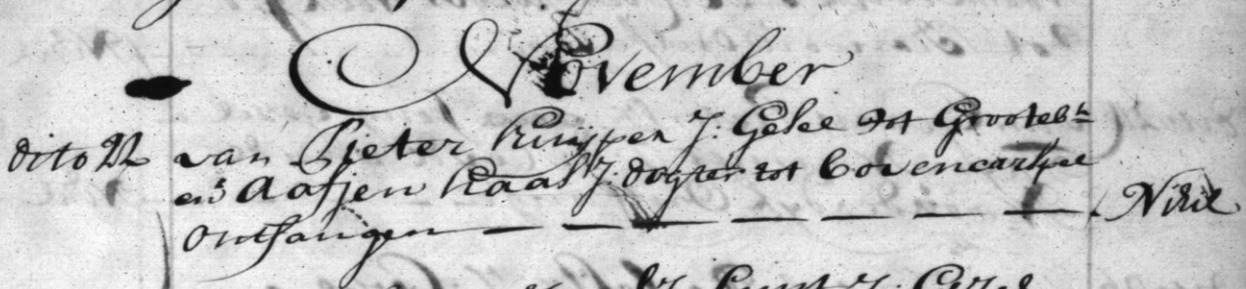 November
dito 22 van Pieter Kuijper J: Gesel tot Grooteb:k
en Aafjen Kaas J: dogter tot bovencarspel
Ontfangen — — — — — — — Nihil